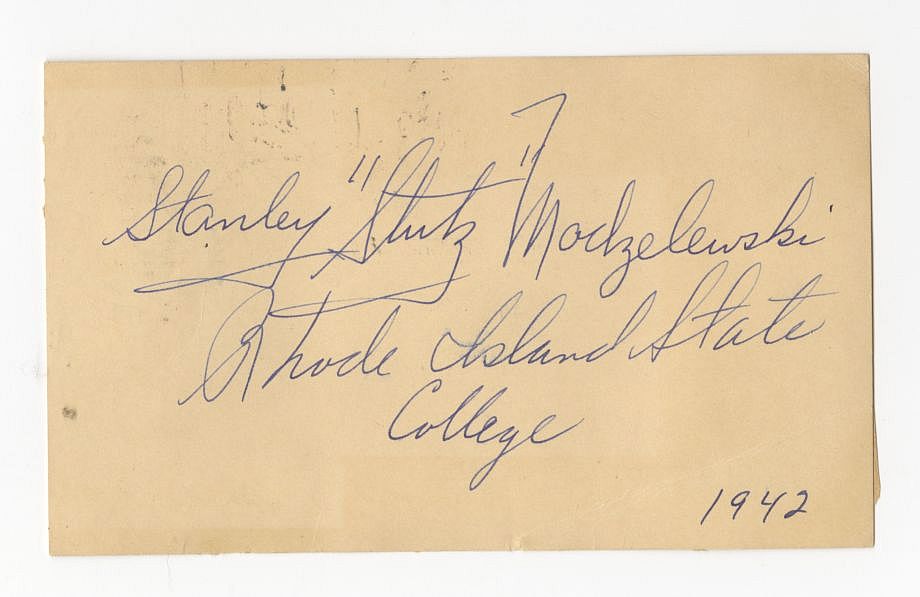 Stanley "Stutz" Modzelewski
Rhode Island State
College
1942